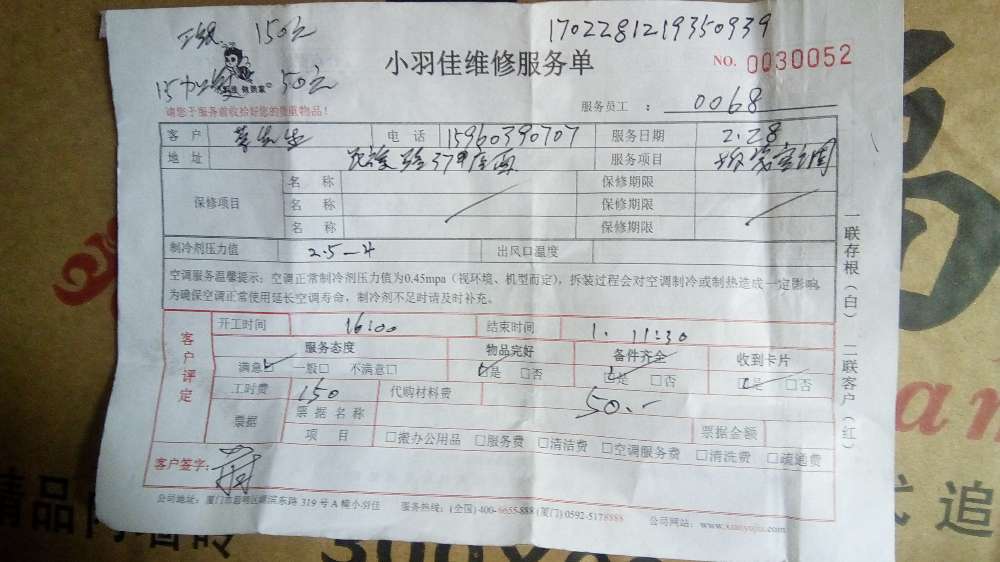 工资 150元
1702281219350939
小羽佳维修服务单
NO. 0030052
150元
请您于服务前收拾好您的贵重物品!
服务员工 : 0068
客 户 电 话 15960390707 服务日期 2.28
地 址 服务项目 拆装空调
保修项目 名 称 保修期限
名 称 保修期限
名 称 保修期限
制冷剂压力值 2.5-4 出风口温度
空调服务温馨提示: 空调正常制冷剂压力值为0.45mpa(视环境、机型而定),拆装过程会对空调制冷或制热造成一定影响,
为确保空调正常使用延长空调寿命,制冷剂不足时请及时补充。
客户评定 开工时间 16:00 结束时间 1. 11:30
服务态度 物品完好 备件齐全 收到卡片
满意☑ 一般□ 不满意□ ☑是 □否 ☑是 □否 ☑是 □否
工时费 150 代购材料费 50.-
票据 票 据 名 称 票据金额
项 目 □搬办公用品 □服务费 □清洁费 □空调服务费 □清洗费 □疏通费
客户签字:
公司地址: 厦门市思明区 319号A幢小羽佳 服务热线: (全国) 400-6655-888 (厦门) 0592-5178888 公司网站: www.xiaoyujia.com
一联存根(白) 二联客户(红)
精品
追